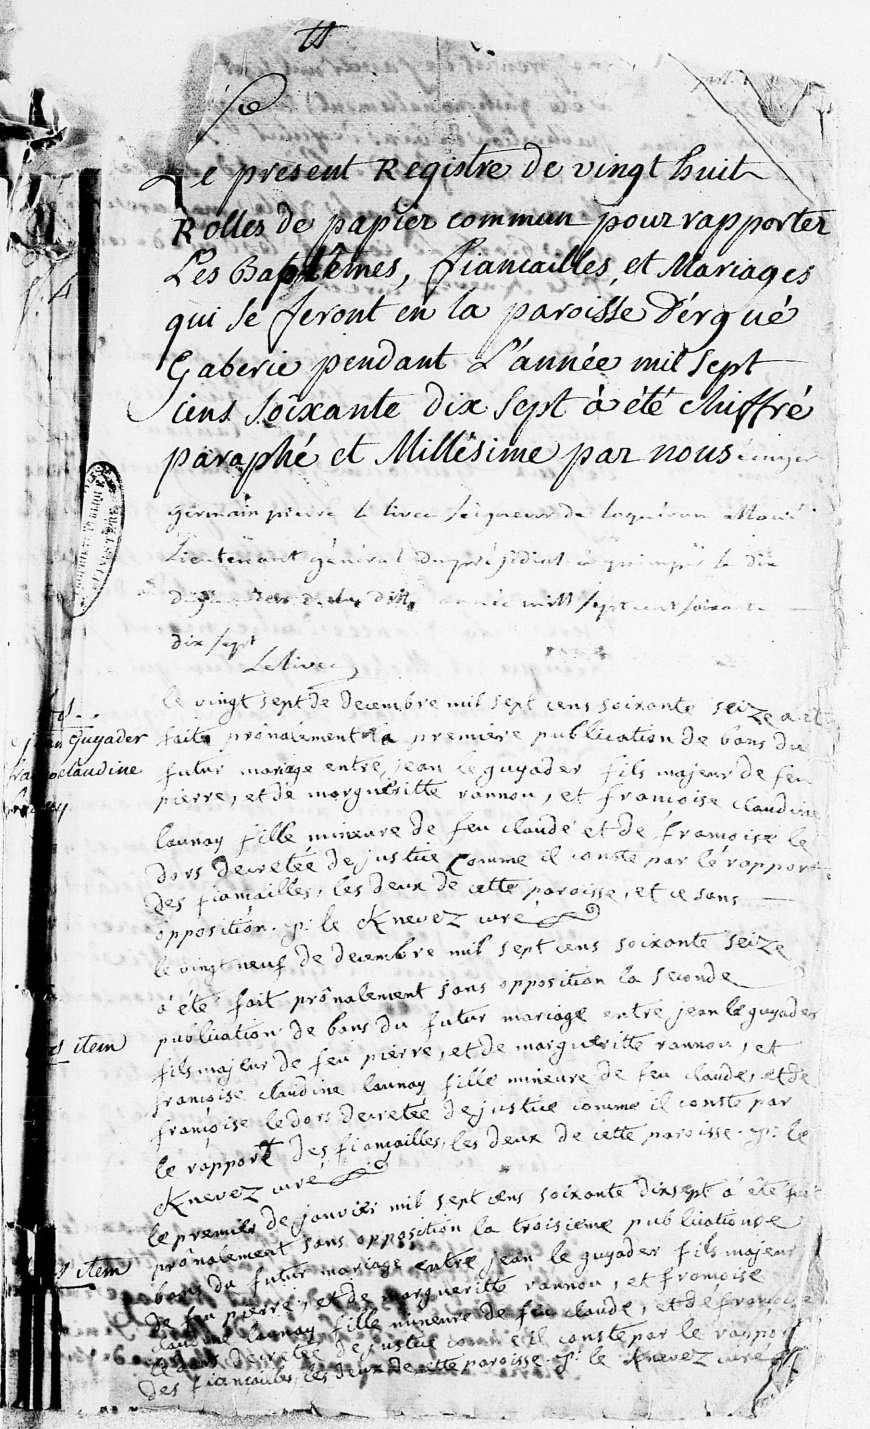 Le present Registre de vingt huit
Rolles de papier commun pour rapporter
Les Baptêmes, fiancailles, et Mariages
qui se feront en la paroisse D'érgué
Gaberie pendant L'année mil sept
cens soixante dix sept à été chiffré
paraphé et Millésime par nous écuyer
germain pierre le livec seigneur de
Lieutenant général du présidial a quimper le dix
année mill sept cent soixante
dix sept
Le livec
le vingt sept de decembre mil sept cens soixante seize a eté
jean Guyader
faite prônalement la premiere publication de bans du
claudine
futur mariage entre jean le guyader fils majeur de feu
launay
pierre, et de margueritte rannou, et francoise claudine
launay fille mineure de feu claude et de françoise le
dors decretée de justice comme il conste par le rapport
des fiancailles, les deux de cette paroisse, et ce sans
opposition. p: le Knevez curé
le vingt neuf de decembre mil sept cens soixante seize
à été fait prônalement sans opposition la seconde
publication de bans du futur mariage entre jean le guyader
item
fils majeur de feu pierre, et de margueritte rannou, et
francoise claudine launay fille mineure de feu claude, et de
françoise le dors decretée de justice comme il conste par
le rapport des fiancailles, les deux de cette paroisse. p: le
Knevez curé
le premier de janvier mil sept cens soixante dix sept à été fait
prônalement sans opposition la troisieme publication de
item
bans du futur mariage entre jean le guyader fils majeur
de feu pierre, et de margueritte rannou, et francoise
claudine launay fille mineure de feu claude, et de francoise
le dors decretée de justice comme il conste par le rapport
des fiancailles, les deux de cette paroisse. p: le Knevez curé